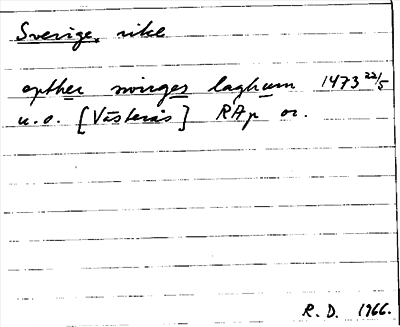 Sverige, rike
epther swirges laghum 1473 22/5
u.o. [Västerås] RAp or.
R.D. 1966.